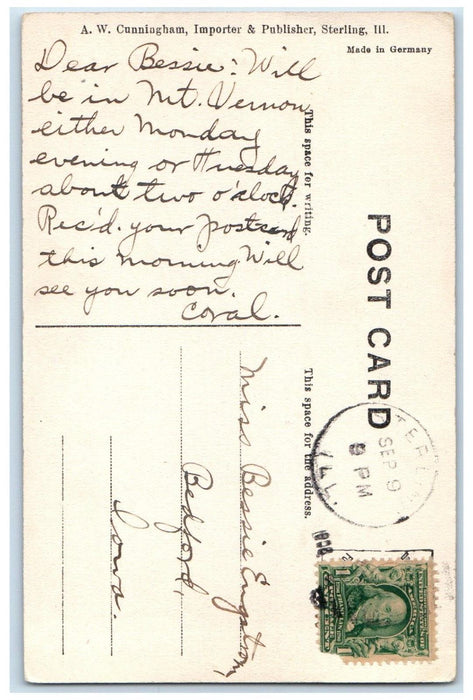 A. W. Cunningham, Importer & Publisher, Sterling, Ill.
Made in Germany
Dear Bessie: Will
be in Mt. Vernon
either Monday
evening or Tuesday
about two o'clock.
Rec'd. your postcard
this morning Will
see you soon.
Coral.
This space for writing.
POST CARD
This space for the address.
Miss Bessie Engstrom,
Bedford,
Iowa.
SEP 9
9 PM
ILL.
1
1